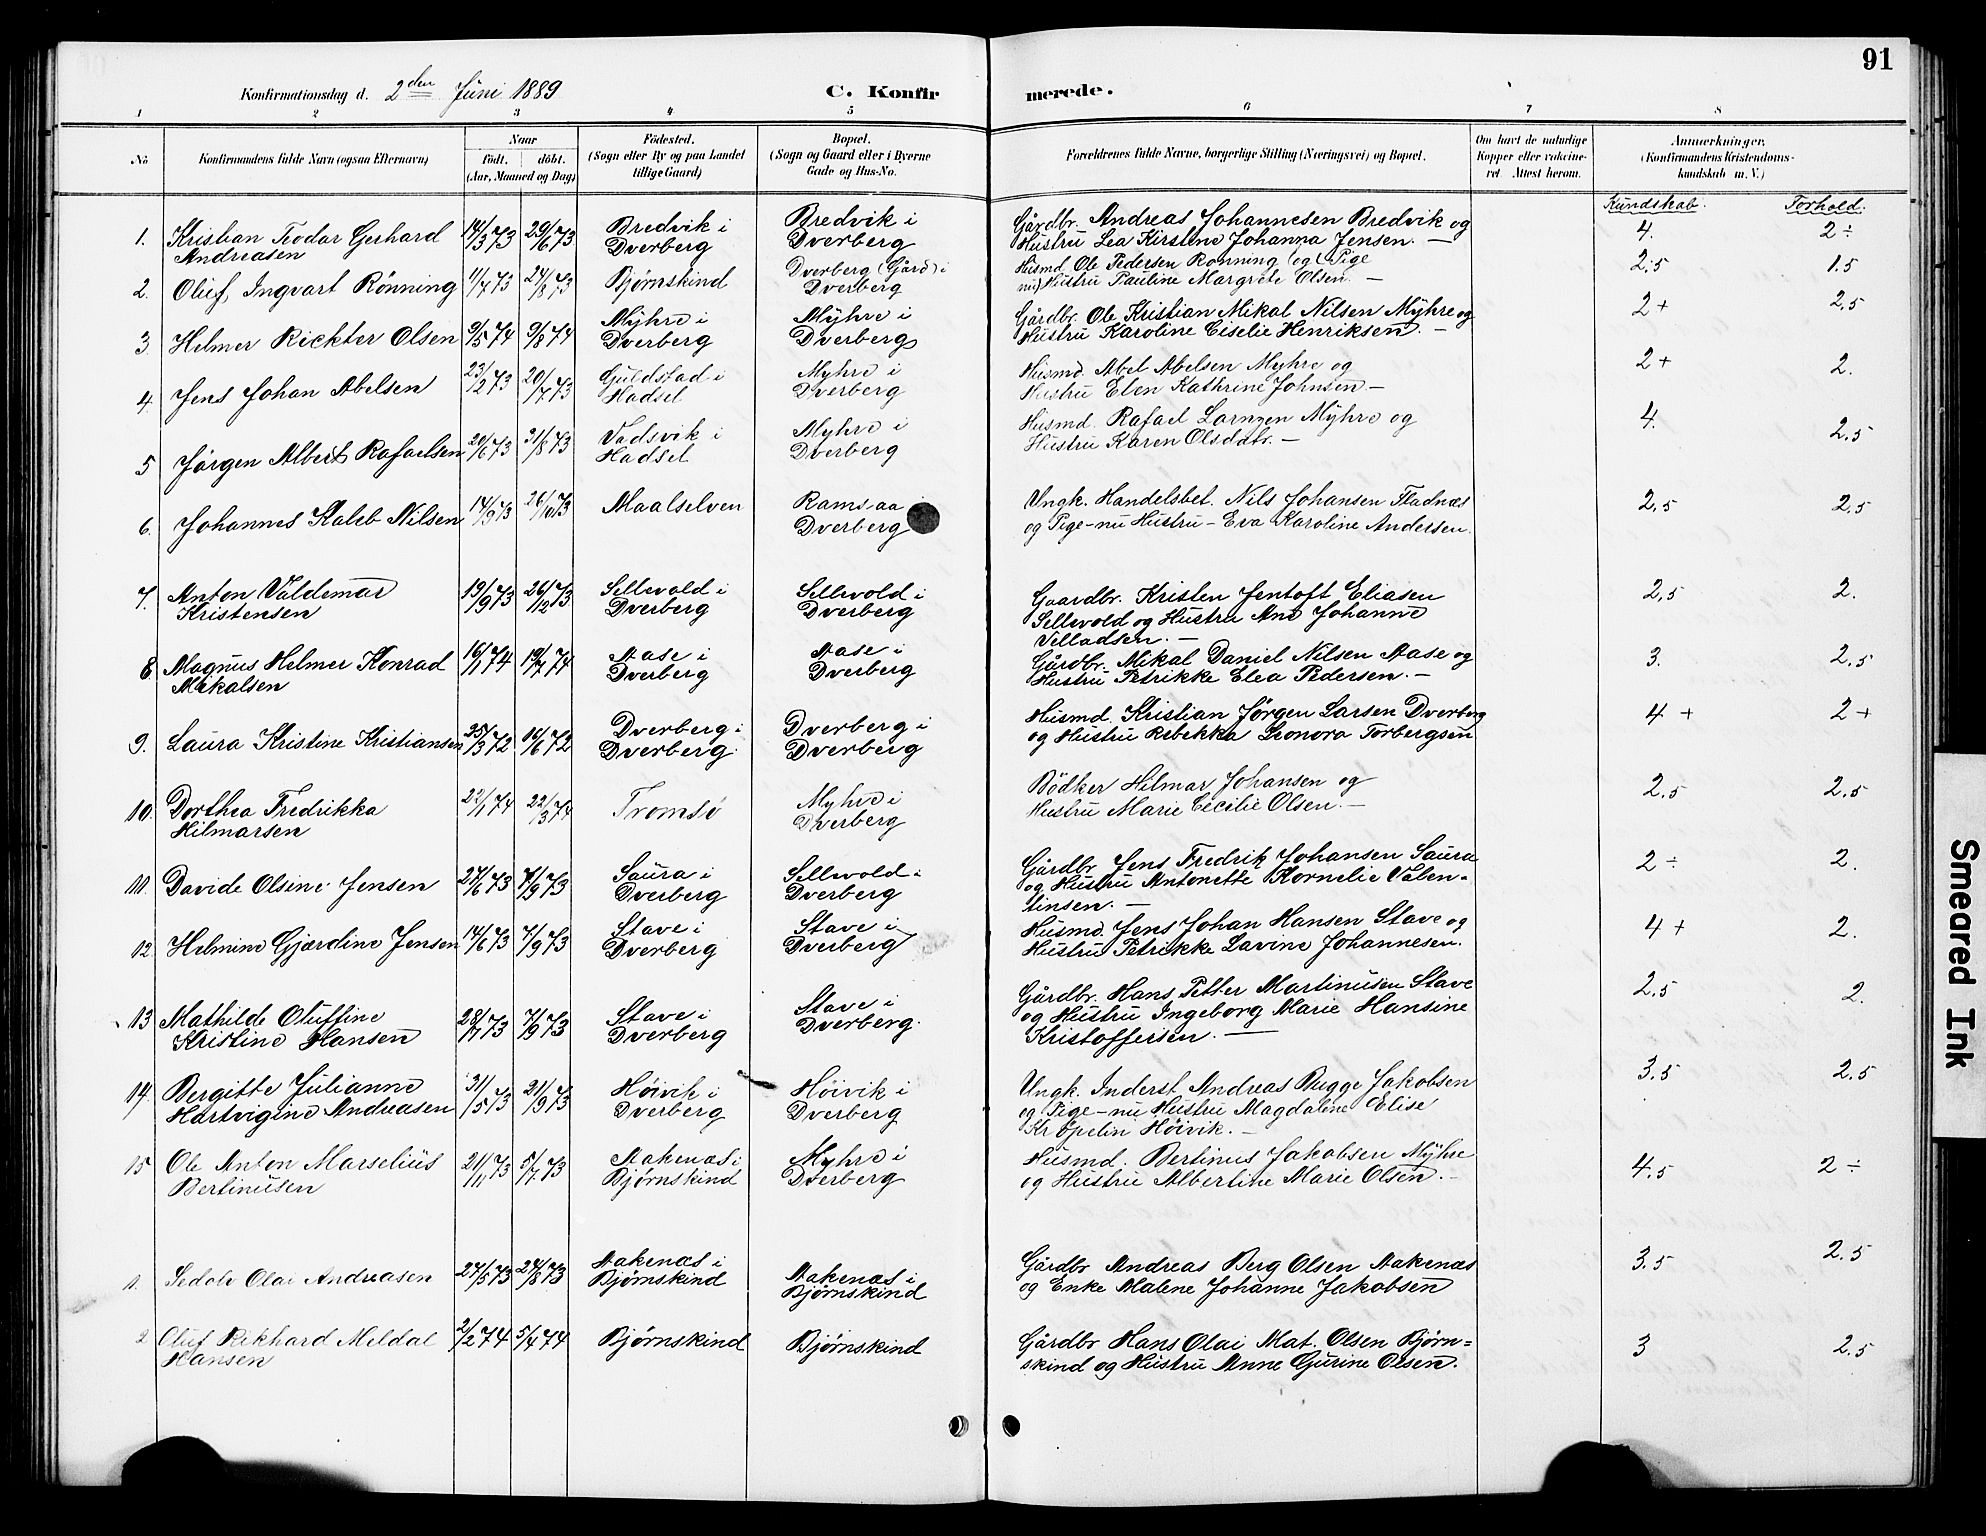 91
Konfirmationsdag d. 2den Juni 1889 C. Konfirmerede.
1 2 3 4 5 6 7 8
No Konfirmandens fulde Navn (ogsaa Efternavn) Naar født. døbt. (Aar, Maaned og Dag) Födested. (Sogn eller By og paa Landet tillige Gaard) Bopæl. (Sogn og Gaard eller i Byerne Gade og Hus-No. Forældrenes fulde Navne, borgerlige Stilling (Næringsvei) og Bopæl. Om havt de naturlige Kopper eller vakcineret. Attest herom. Anmærkninger. (Konfirmandens Kristendomskundskab m. V.)
Kundskab. Forhold.
1. Kristian Teodor Gerhard 14/3 73 29/6 73 Bredvik i Bredvik i Gårdbr. Andreas Johannesen Bredvik og 4. 2 ÷
Andreasen Dverberg Dverberg Hustru Lea Kirstine Johanna Jensen. —
2. Oluf Ingvart Rønning 11/4 73 24/8 73 Bjørnskind Dverberg (Gård) i Husmd. Ole Pedersen Rønning og (Pige 2.5 1.5
Dverberg nu) Hustru Pauline Margrete Olsen. —
3. Helmer Rickter Olsen 9/5 74 9/8 74 Myhre i Myhre i Gårdbr. Ole Kristian Mikal Nilsen Myhre og 2 + 2.5
Dverberg Dverberg Hustru Karoline Ciselie Henriksen. —
4. Jens Johan Abelsen 23/2 73 20/7 73 Guldstad i Myhre i Husmd. Abel Abelsen Myhre og 2 + 2.
Hadsel Dverberg Hustru Elen Kathrine Johnsen —
5 Jørgen Albert Rafaelsen 20/6 73 31/8 73 Vadsvik i Myhre i Husmd. Rafael Larnzen Myhre og 4. 2.5
Hadsel Dverberg Hustru Karen Olsdatr. —
6. Johannes Kaleb Nilsen 14/9 73 26/10 73 Maalselven Ramsaa Ungk. Handelsbet. Nils Johansen Fladnæs 2,5 2,5
Dverberg og Pige-nu Hustru - Eva Karoline Andersen.
7. Anton Valdemar 19/9 73 26/12 73 Sellevold i Sellevold i Gaardbr. Kristen Jentoft Eliasen 2,5 2.
Kristensen Dverberg Dverberg Sellevold og Hustru Ane Johanne
Velladsen. —
8. Magnus Helmer Konrad 16/1 74 19/7 74 Aase i Aase i Gårdbr. Mikal Daniel Nilsen Aase og 3. 2.5
Mikalsen Dverberg Dverberg Hustru Petrikke Elea Pedersen. —
9. Laura Kristine Kristiansen 25/3 72 16/6 72 Dverberg i Dverberg i Husmd. Kristian Jørgen Larsen Dverberg 4 + 2 +
Dverberg Dverberg og Hustru Rebekka Leonora Torbergsen
10. Dorthea Fredrikka 22/1 74 22/3 74 Tromsø Myhre i Bødker Hilmar Johansen og 2.5 2.5
Hilmarsen Dverberg Hustru Marie Cecilie Olsen. —
11. Davide Olsine Jensen 27/6 73 7/9 73 Saura i Sellevold i Gårdbr. Jens Fredrik Johansen Saura 2 ÷ 2.
Dverberg Dverberg og Hustru Antonette Kornelie Valen-
tinsen. —
12. Helmine Gjærdine Jensen 14/6 73 7/9 73 Stave i Stave i Husmd. Jens Johan Hansen Stave og 4 + 2.
Dverberg Dverberg Hustru Petrikke Lavine Johannesen.
13 Mathilde Oluffine 28/7 73 7/9 73 Stave i Stave i Gårdbr. Hans Petter Martinusen Stave 2.5 2.
Kristine Hansen Dverberg Dverberg. og Hustru Ingeborg Marie Hansine
Kristoffersen. —
14. Bergitte Julianne 31/5 73 21/9 73 Høivik i Høivik i Ungk. Inderst Andreas Bugge Jakobsen 3.5 2.5
Hartvigine Andreasen Dverberg Dverberg og Pige-nu Hustru Magdalene Elise
Høivik. —
15 Ole Anton Marselius 21/1 73 5/7 73 Aakenæs i Myhre i Husmd. Bertinus Jakobsen Myhre 4.5 2 ÷
Bertinusen Bjørnskind Dverberg og Hustru Albertine Marie Olsen. —
1. Sedolv Olai Andreasen 27/5 73 24/8 73 Aakenæs i Aakenæs i Gårdbr Andreas Berg Olsen Aakenæs 3.5 2.5
Bjørnskind Bjørnskind og Enke Malene Johanne Jakobsen
2 Oluf Rikhard Meldal 2/2 74 5/4 74 Bjørnskind Bjørnskind Gårdbr Hans Olai Mat. Olsen Bjørn- 3 2.5
Hansen skind og Hustru Anne Gurine Olsen.
Smeared Ink